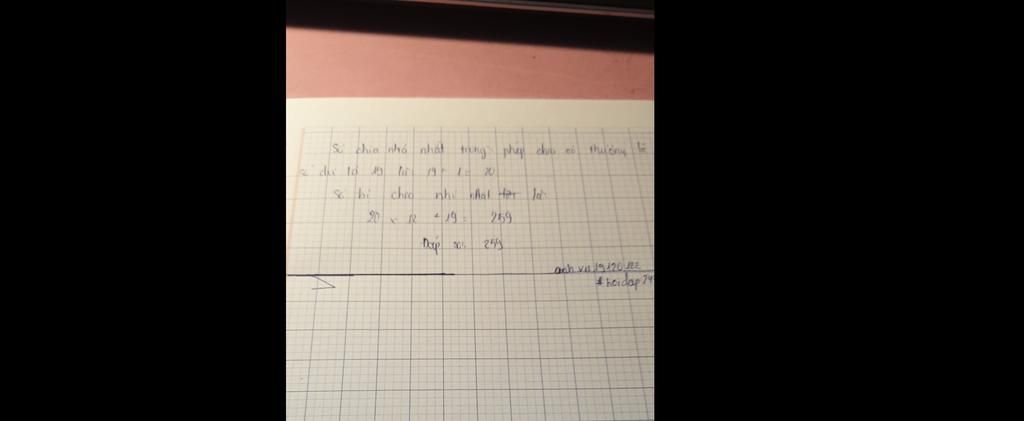 Số chia nhỏ nhất trong phép chia có thương là
số dư là 19 là: 19 + 1 = 20
Số bị chia nhỏ nhất là:
20 x 12 + 19 = 259
Đáp số: 259
anhvu19120
#hoidap24